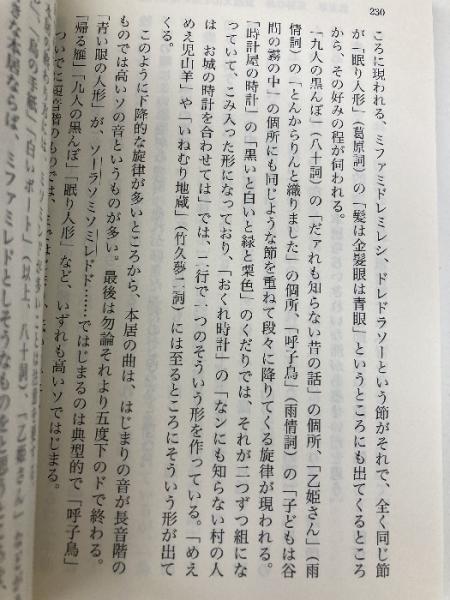 230
ころに現われる、ミファミドレミレシ、ドレドラソーという節がそれで、全く同じ節
が、「眠り人形」（葛原詞）の「髪は金髪眼は青眼」というところにも出てくるところ
から、その好みの程が伺われる。
「九人の黒んぼ」（八十詞）の「だァれも知らない昔の話」の個所、「乙姫さん」（雨
情詞）の「とんからりんと織りました」の個所、「呼子鳥」（雨情詞）の「子どもは谷
間の霧の中」の個所にも同じような節を重ねて段々に降りてくる旋律が現われる。
「時計屋の時計」の「黒いと白いと緑と栗色」のくだりでは、それが二つずつ組にな
っていて、こみ入った形になっており、「おくれ時計」の「なンにも知らない村の人
は　お城の時計を合わせては」では、二行で一つのそういう形を作っている。「めえ
めえ児山羊」や「いねむり地蔵」（竹久夢二詞）には至るところにそういう形が出て
くる。
このように下降的な旋律が多いところから、本居の曲は、はじまりの音が長音階の
ものでは高いソの音というものが多い。最後は勿論それより五度下のドで終わる。
「青い眼の人形」が、ソーラソミソミレドド……ではじまるのは典型的で「呼子鳥」
「帰る雁」「九人の黒んぼ」「眠り人形」など、いずれも高いソではじまる。
ついでに短音階のものでは、
「白いボート」（以上、八十詞）、「乙姫さん」
ば、ミファミレドとしそうなものを